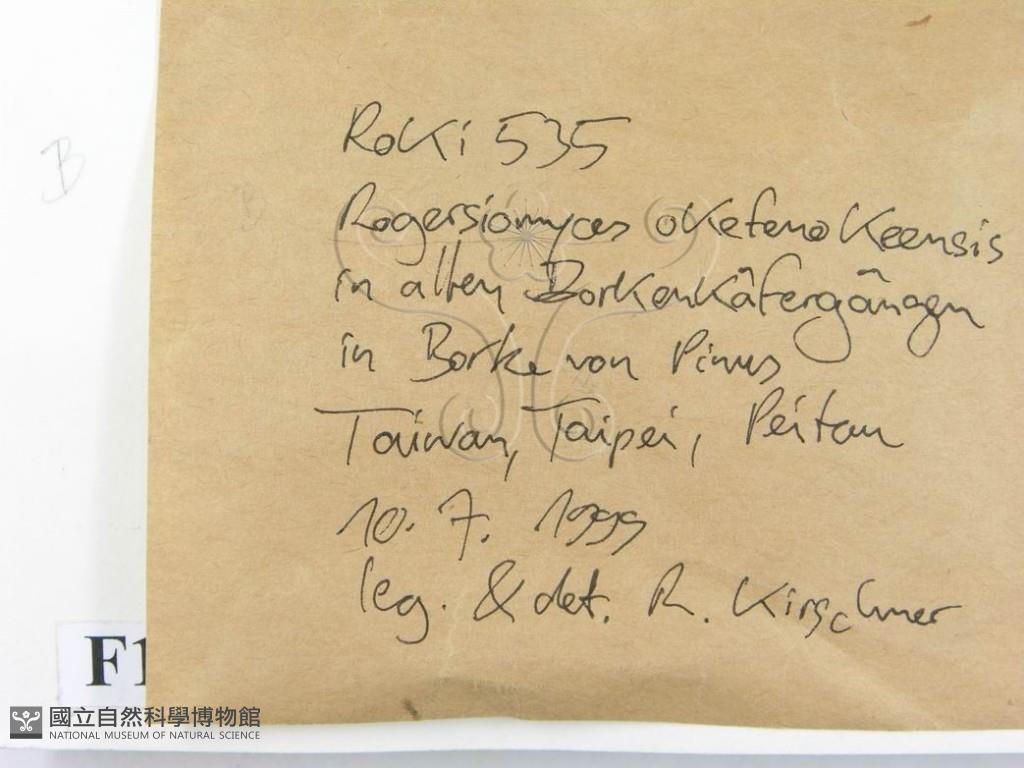 B
RoKi 535
Rogersiomyces okefenokeensis
in alten Borkenkäfergängen
in Borke von Pinus
Taiwan, Taipei, Peitou
10. 7. 1999
leg. & det. R. Kirschner
F1
國立自然科學博物館
NATIONAL MUSEUM OF NATURAL SCIENCE